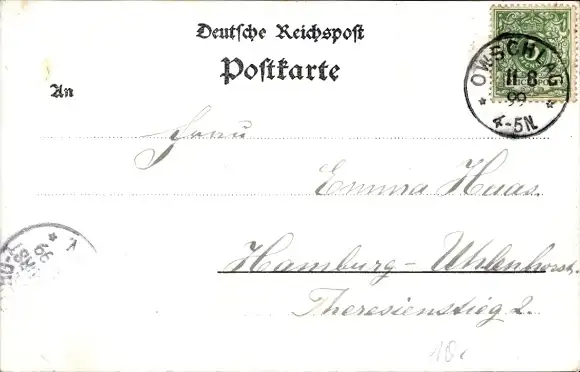 Deutsche Reichspost
Postkarte
An
OWSCHLAG
11 8
99
4-5N.
Frau
Emma Haas.
Hamburg-Uhlenhorst.
Theresienstieg 2.
99